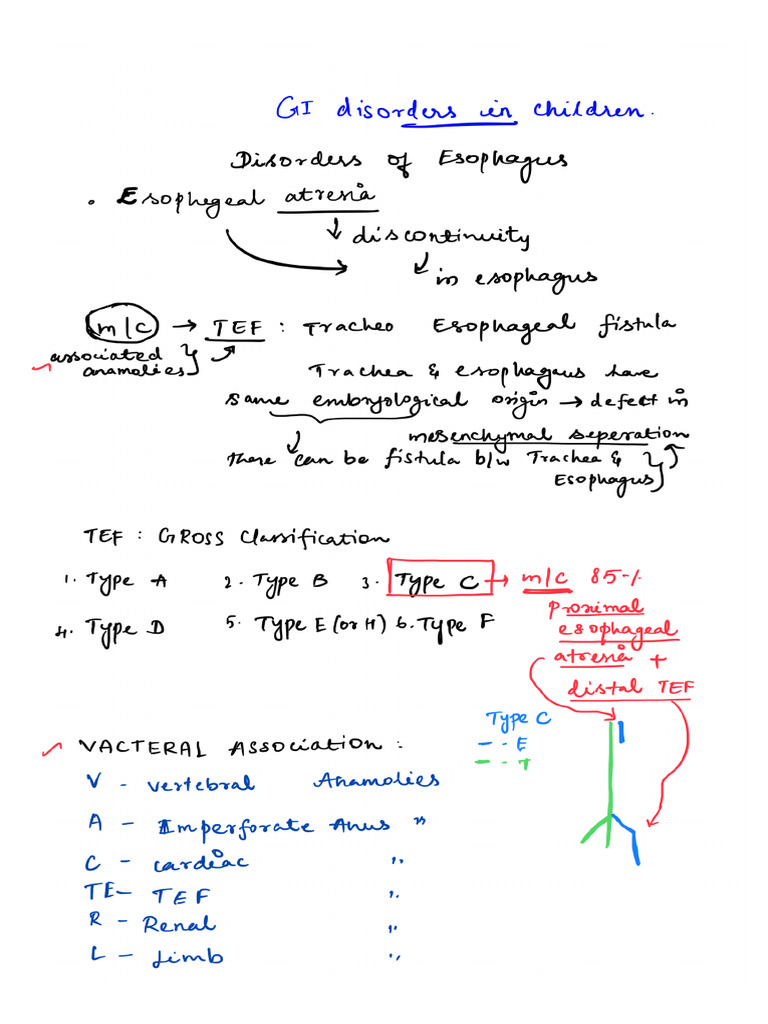 GI disorders in children.
Disorders of Esophagus
. Esophegeal atresia
↓ discontinuity
in esophagus
m/c → TEF : Tracheo Esophageal fistula
associated
anamolies
Trachea & esophagus have
same embryological origin → defect in
mesenchymal seperation
there can be fistula b/w Trachea &
Esophagus
TEF : GROSS Classification
1. Type A 2. Type B 3. Type C → m/c 85-%
4. Type D 5. Type E (or H) 6. Type F
Proximal
esophageal
atresia +
distal TEF
Type C
- . E
- . T
VACTERAL Association :
V - Vertebral Anamolies
A - Imperforate Anus "
C - cardiac "
TE - TEF "
R - Renal "
L - Limb "